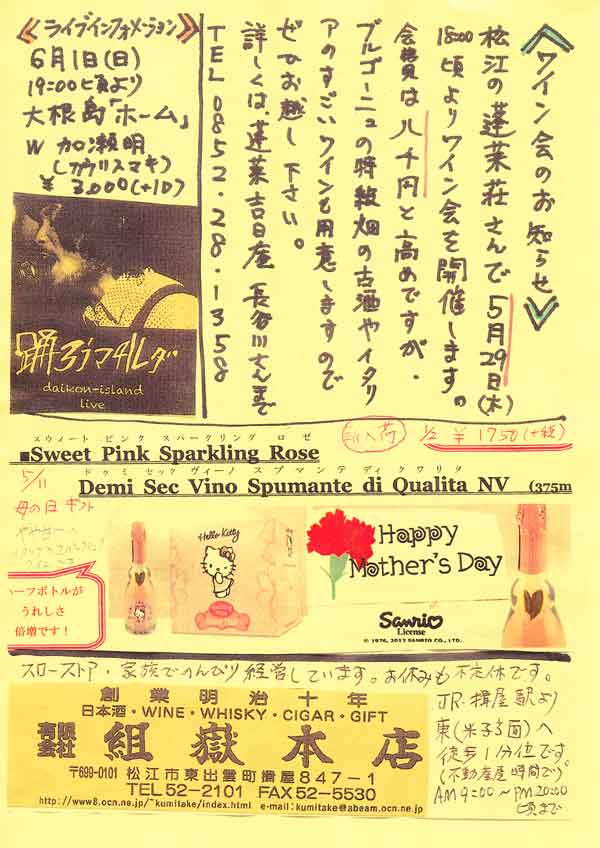 《ワイン会のお知らせ》
松江の蓬莱荘さんで5月29日(木)
18:00頃よりワイン会を開催します。
会費は八千円と高めですが、
ブルゴーニュの特級畑の古酒やイタリ
アのすごいワインも用意しますので
ぜひお越し下さい。
詳しくは、蓬莱吉日庵 長谷川さんまで
TEL 0852・28・1358
《ライブインフォメーション》
6月1日(日)
19:00頃より
大根島「ホーム」
W 加瀬明
¥3,000(+1D)
踊ろうマチルダ
daikon-island
live
新入荷 1/2 ¥1750(+税)
スウィート ピンク スパークリング ロゼ
■Sweet Pink Sparkling Rose
ドゥミ セック ヴィーノ スプマンテ ディ クワリタ
Demi Sec Vino Spumante di Qualita NV (375m
5/11
母の日ギフト
ハーフボトルが
うれしさ
倍増です！
Hello Kitty
Happy
Mother's Day
Sanrio
License
© 1976, 2012 SANRIO CO., LTD.
スローストア・家族でのんびり経営しています。お休みも不定休です。
創業明治十年
日本酒・WINE・WHISKY・CIGAR・GIFT
有限会社 組嶽本店
〒699-0101 松江市東出雲町揖屋847-1
TEL52-2101 FAX52-5530
http://www8.ocn.ne.jp/~kumitake/index.html e-mail:kumitake@abeam.ocn.ne.jp
JR.揖屋駅より
東(米子方面)へ
徒歩1分位です。
(不動産屋時間で)
AM9:00〜PM20:00
頃まで